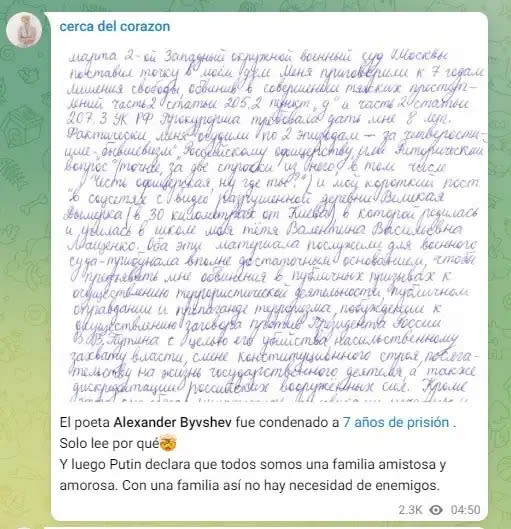 cerca del corazon
марта 2-ой Западный окружной военный суд Москвы
поставил точку в моём деле. Меня приговорили к 7 годам
лишения свободы, обвинив в совершении тяжких преступ-
лений часть 2 статьи 205.2 пункт „д" и часть 2 статьи
207.3 УК РФ. Прокурорша требовала дать мне 8 лет.
Фактически меня осудили по 2 эпизодам — за четверости-
Российскому офицерству, или Риторический
вопрос" (точнее, за две строчки из него в том числе
"Честь офицерская, ну где ты?") и мой короткий пост
в соцсетях с видео разрушенной деревни Великая
Дымерка (в 30 километрах от Киева) в которой родилась
и училась в школе моя тётя Валентина Васильевна
Мащенко. Оба эти материала послужили для военного
суда-трибунала вполне достаточным основанием, чтобы
предъявить мне обвинения в публичных призывах к
осуществлению террористической деятельности, публичном
оправдании и пропаганде терроризма, побуждении к
осуществлению заговора против Президента России
В.В. Путина с целью его убийства, насильственному
захвату власти, смене конституционного строя, посяга-
тельству на жизнь государственного деятеля, а также
дискредитации российских вооружённых сил. Кроме
El poeta Alexander Byvshev fue condenado a 7 años de prisión .
Solo lee por qué🤯
Y luego Putin declara que todos somos una familia amistosa y
amorosa. Con una familia así no hay necesidad de enemigos.
2.3K 04:50